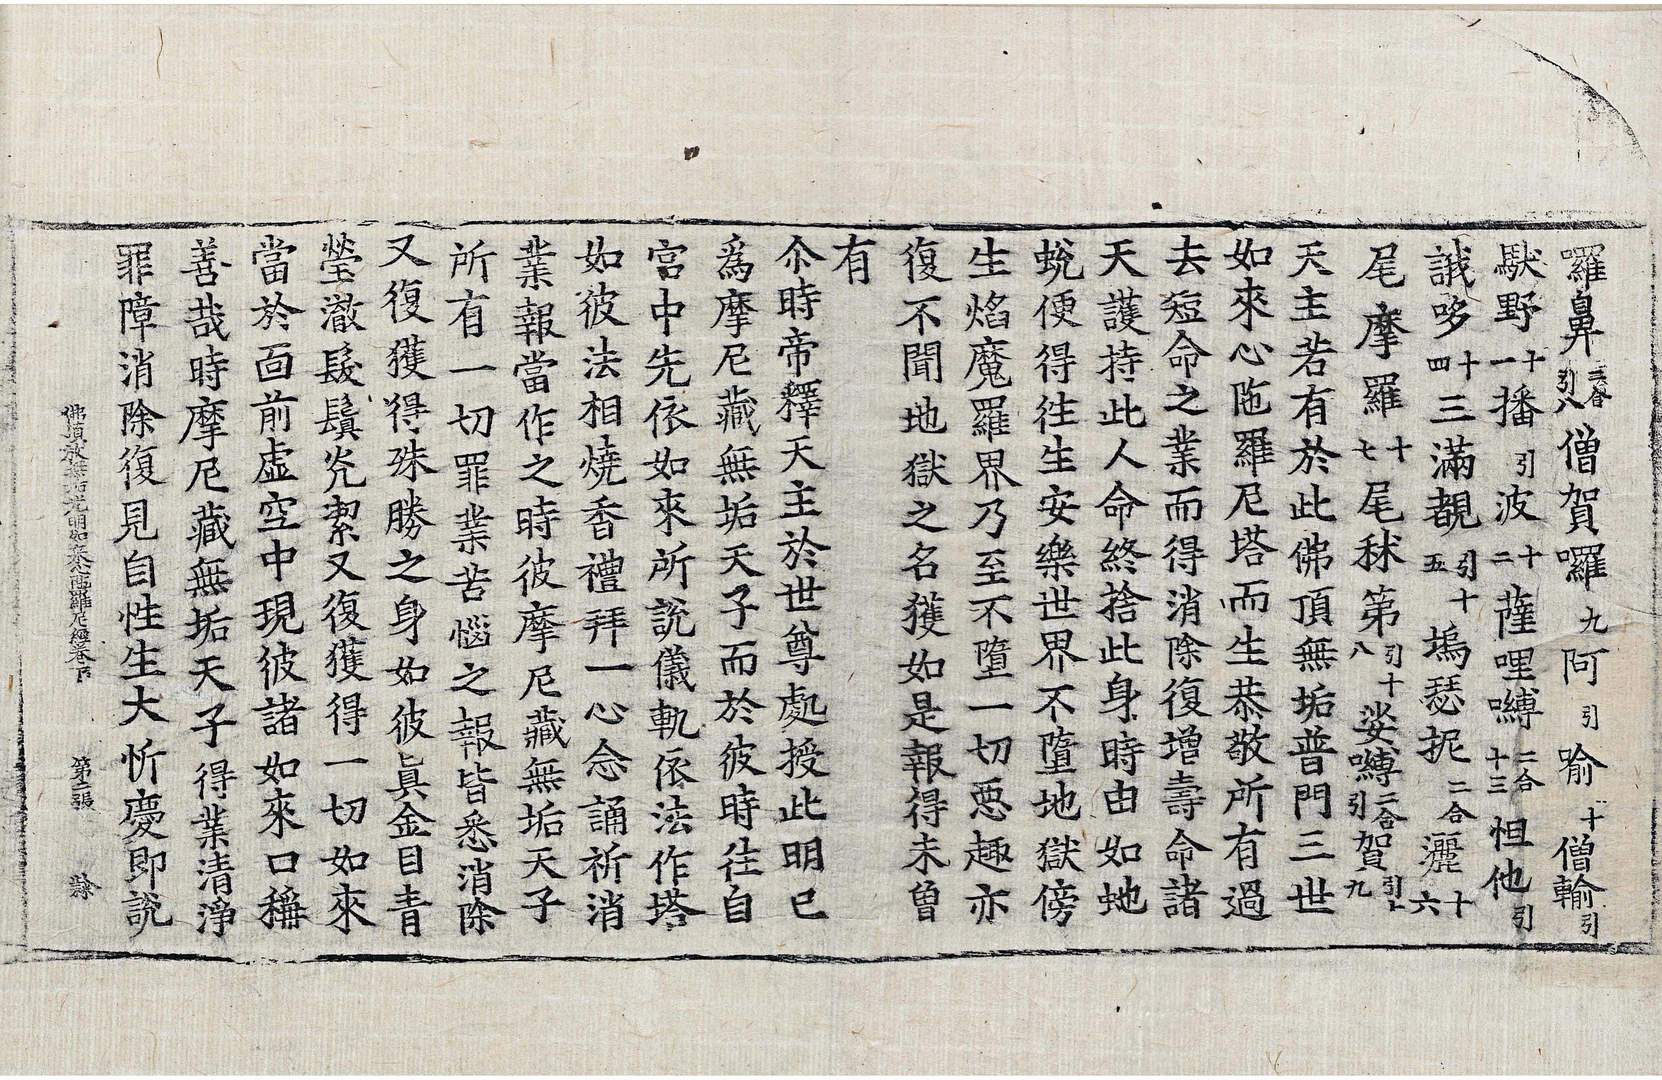 羅鼻二合引八僧賀囉九阿引喻十僧輸引
馱野十一播引波十二薩哩嚩二合十三怛他引
誐哆十四三滿覩引十五塢瑟抳二合灑十六
尾摩羅十七尾秫第引十八娑嚩二合引賀引十九
天主若有於此佛頂無垢普門三世
如來心陁羅尼塔而生恭敬所有過
去短命之業而得消除復增壽命諸
天護持此人命終捨此身時由如虵
蛻便得往生安樂世界不墮地獄傍
生焰魔羅界乃至不墮一切惡趣亦
復不聞地獄之名獲如是報得未曾
有
尒時帝釋天主於世尊處授此明已
爲摩尼藏無垢天子而於彼時往自
宮中先依如來所說儀軌依法作塔
如彼法相燒香禮拜一心念誦祈消
業報當作之時彼摩尼藏無垢天子
所有一切罪業苦惱之報皆悉消除
又復獲得殊勝之身如彼眞金目青
瑩澈髮鬚光潔又復獲得一切如來
當於面前虛空中現彼諸如來口稱
善哉時摩尼藏無垢天子得業清淨
罪障消除復見自性生大忻慶即說
佛頂放無垢光明如來心陁羅尼經卷下 第二張